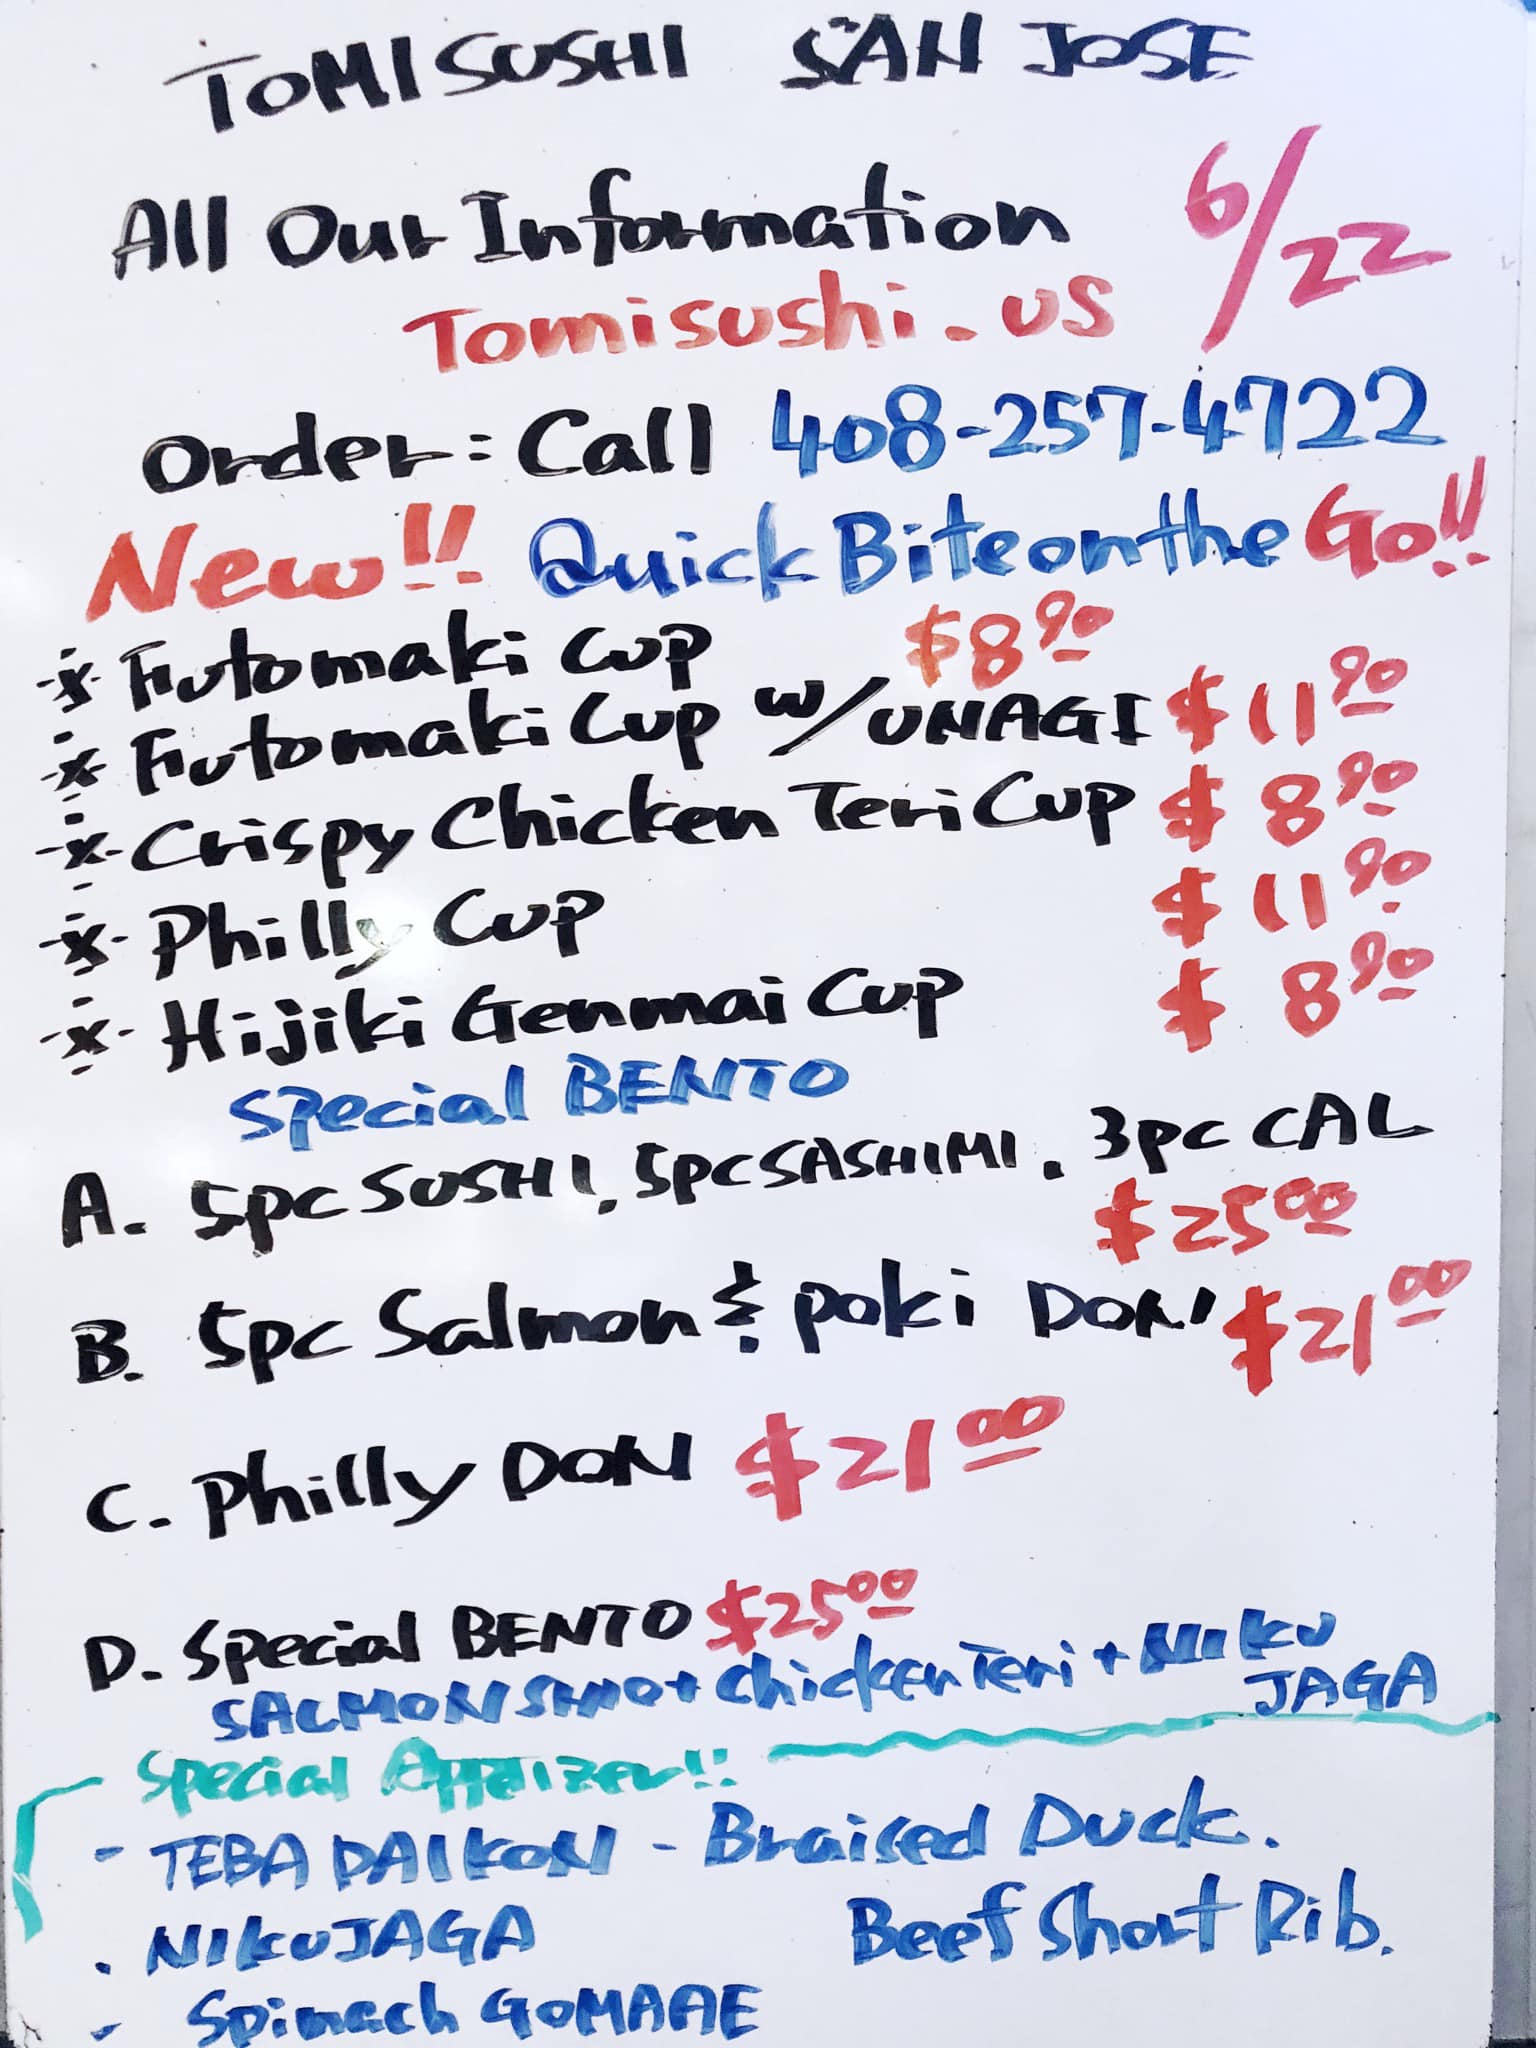 TOMISUSHI SAN JOSE
All Our Information 6/22
Tomisushi.us
Order: Call 408-257-4722
New!! Quick Bite on the Go!!
※ Futomaki Cup $8.90
※ Futomaki Cup w/UNAGI $11.90
※ Crispy Chicken Teri Cup $8.90
※ Philly Cup $11.90
※ Hijiki Genmai Cup $8.90
Special BENTO
A. 5pc SUSHI, 5pc SASHIMI, 3pc CAL
$25.00
B. 5pc Salmon & poki DON $21.00
C. Philly DON $21.00
D. Special BENTO $25.00
SALMON SHIO + Chicken Teri + NIKU
JAGA
Special Appetizer!!
- TEBA DAIKON - Braised Duck.
. NIKUJAGA Beef Short Rib.
- Spinach GOMAAE